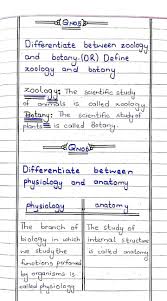 Q no 4
Differentiate between zoology
and botany.(OR) Define
zoology and botany
zoology: The scientific study
of animals is called zoology.
Botany: The scientific study of
plants is called Botany.
Q no 5
Differentiate between
physiology and anatomy
physiology
anatomy
The branch of
biology in which
we study the
functions performed
by organisms is
called physiology
The study of
internal structure
is called anatomy